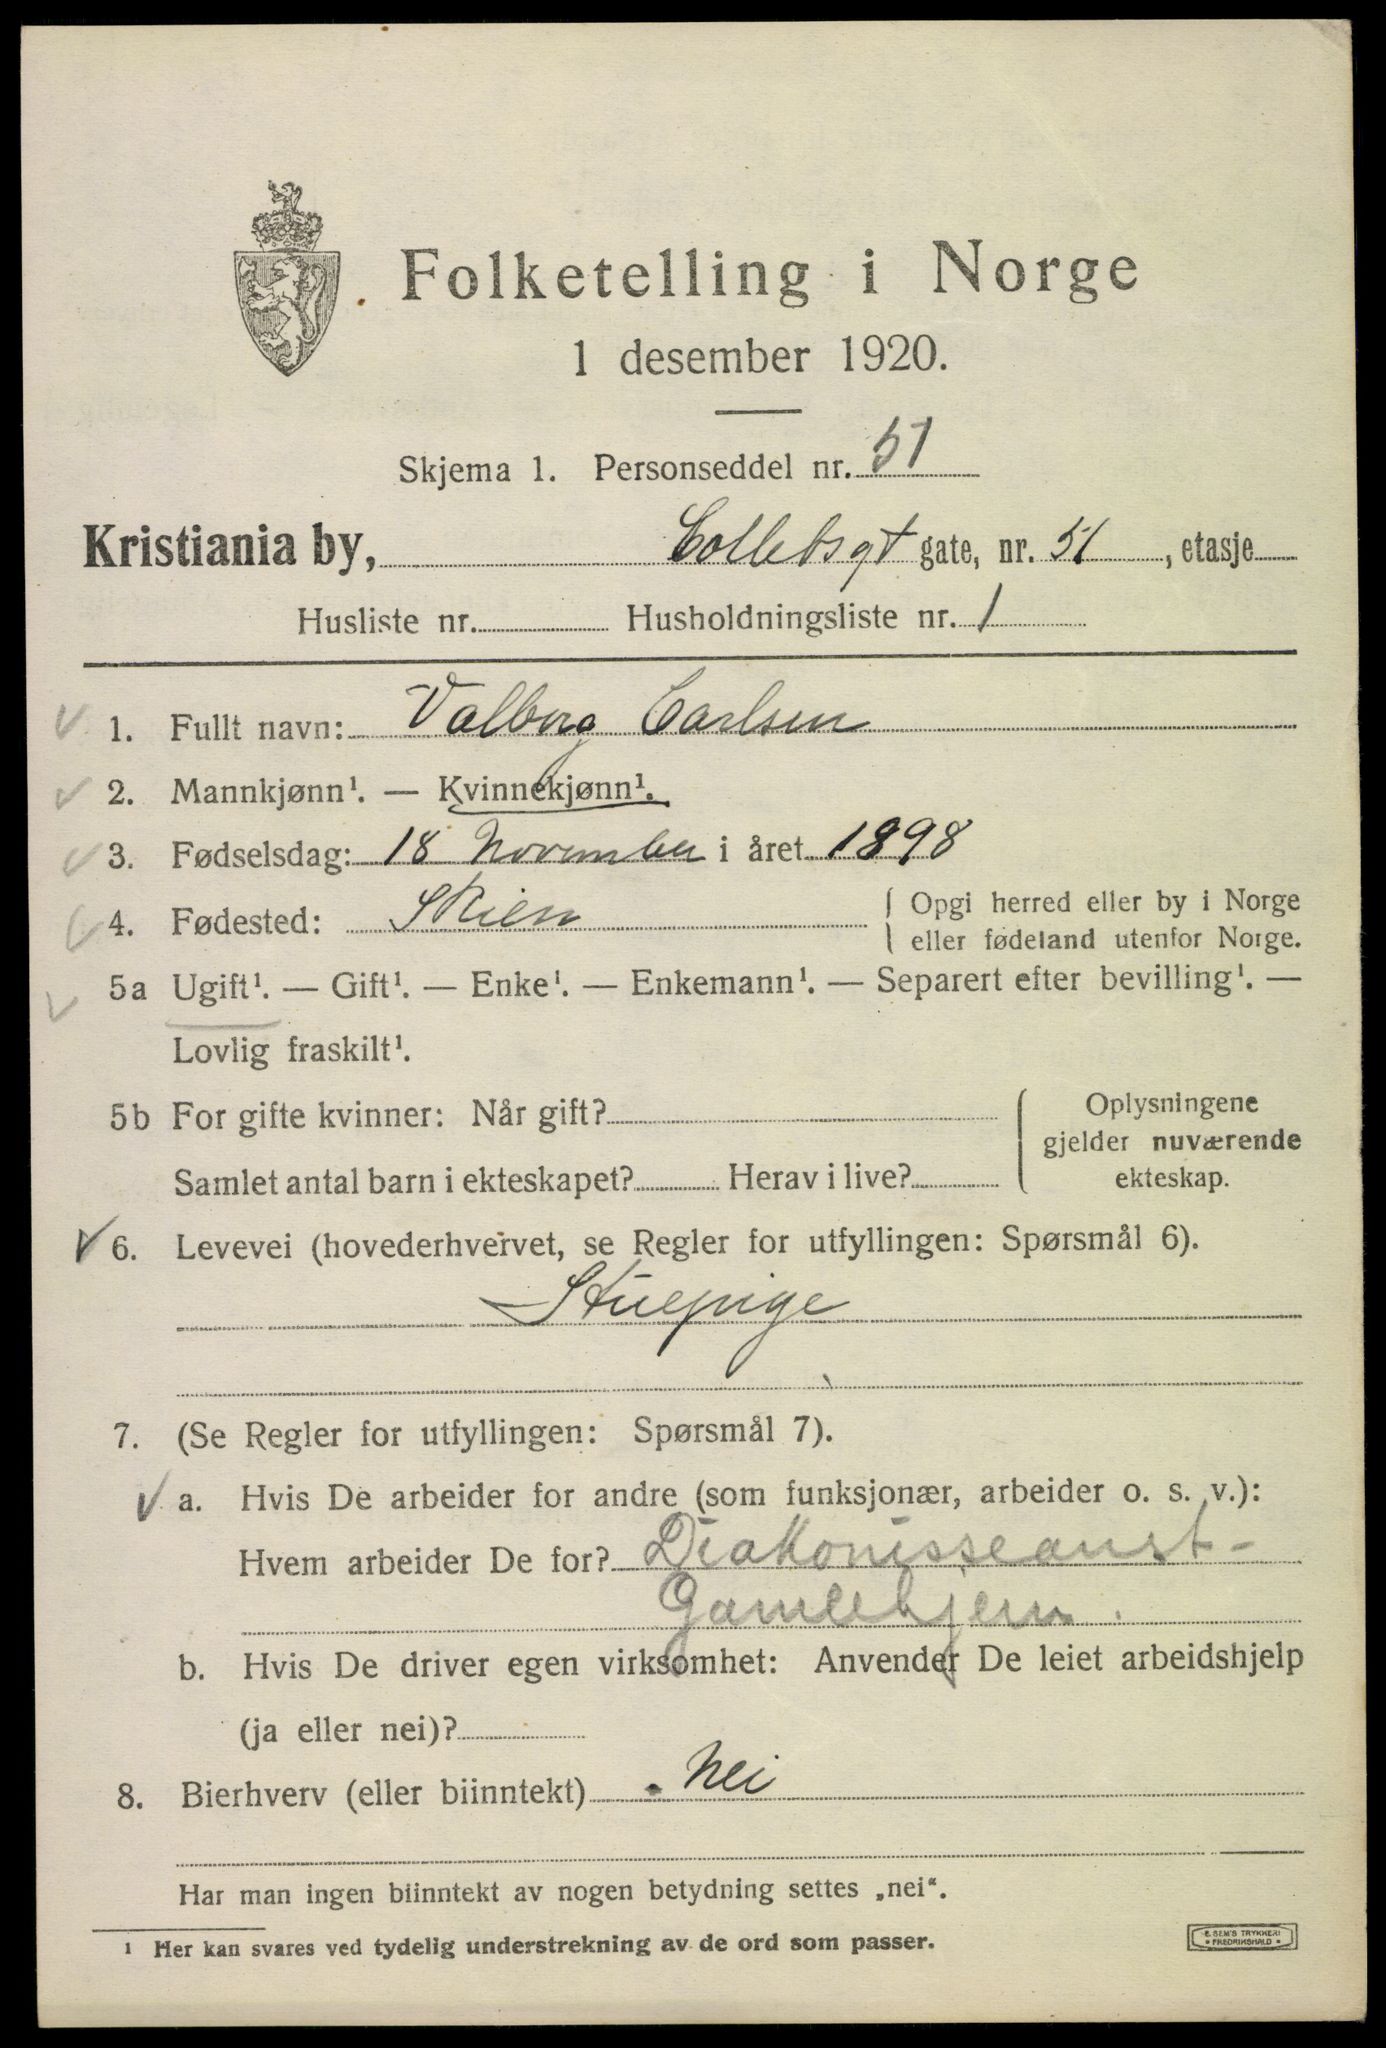 Folketelling i Norge
1 desember 1920.
Skjema 1. Personseddel nr. 51
Kristiania by, Colletsgt gate, nr. 51, etasje
Husliste nr. Husholdningsliste nr. 1
1. Fullt navn: Valborg Carlsen
2. Mannkjønn¹. — Kvinnekjønn¹.
3. Fødselsdag: 18 November i året 1898
4. Fødested: Skien { Opgi herred eller by i Norge
eller fødeland utenfor Norge.
5a Ugift¹. — Gift¹. — Enke¹. — Enkemann¹. — Separert efter bevilling¹. —
Lovlig fraskilt¹.
5b For gifte kvinner: Når gift? { Oplysningene
gjelder nuværende
Samlet antal barn i ekteskapet? Herav i live? ekteskap.
6. Levevei (hovederhvervet, se Regler for utfyllingen: Spørsmål 6).
Stuepige
7. (Se Regler for utfyllingen: Spørsmål 7).
a. Hvis De arbeider for andre (som funksjonær, arbeider o. s. v.):
Hvem arbeider De for? Diakonisseanst-
Gamlehjem.
b. Hvis De driver egen virksomhet: Anvender De leiet arbeidshjelp
(ja eller nei)?
8. Bierhverv (eller biinntekt) Nei
Har man ingen biinntekt av nogen betydning settes „nei“.
¹ Her kan svares ved tydelig understrekning av de ord som passer.
E. SEM'S TRYKKERI
• FREDRIKSHALD •